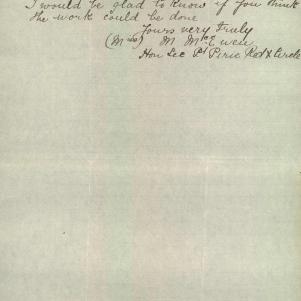 I would be glad to know if you think
the work could be done
Yours very truly
(Miss) M McEwen
Hon Sec Pt Pirie Red X Circle